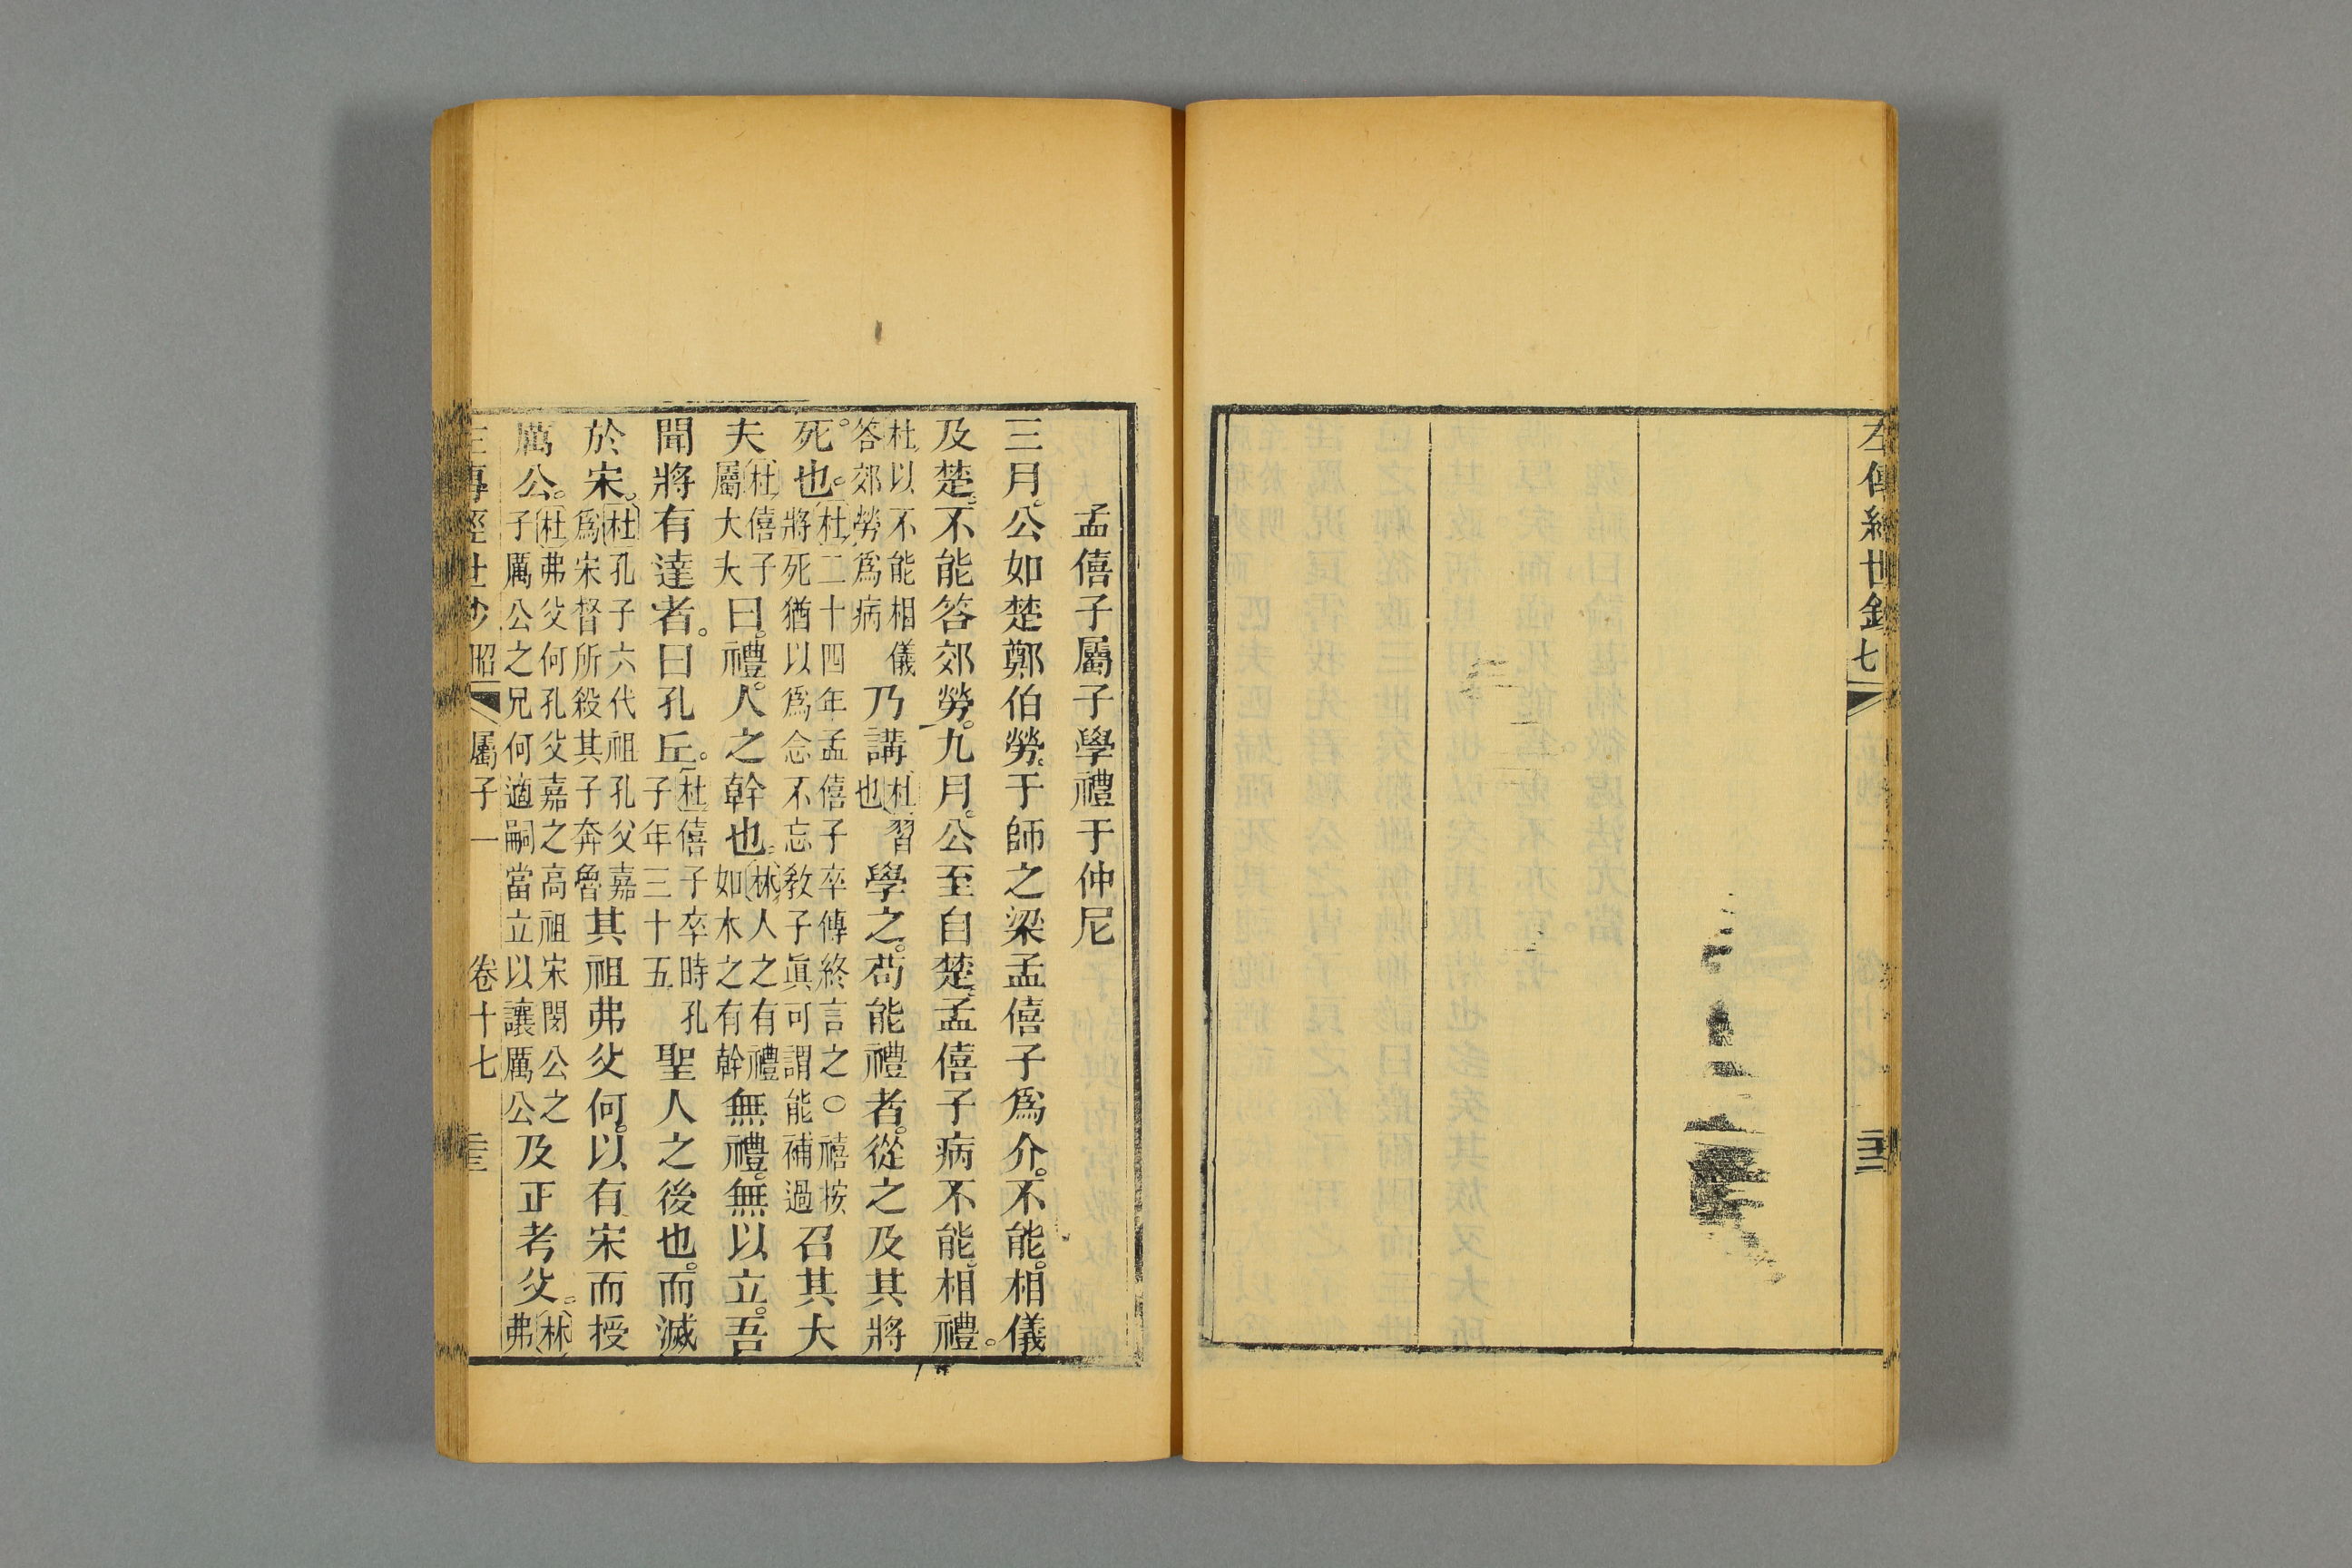 左傳經世鈔 七
孟僖子屬子學禮于仲尼
三月。公如楚鄭伯勞。于師之梁孟僖子爲介。不能。相儀
及楚。不能答郊勞。九月。公至自楚。孟僖子病不能。相禮。
杜以不能相儀答郊勞爲病 乃講 杜習也 學之。苟能禮者。從之及其將
死。也。 杜二十四年孟僖子卒傳終言之○禧按將死猶以爲念不忘教子眞可謂能補過 召其大
夫 杜僖子屬大夫 曰。禮。人之幹也。 林人之有禮如木之有幹 無禮。無以立。吾
聞將有達者。曰孔丘。 杜僖子卒時孔子年三十五 聖人之後也。而滅
於宋。 杜孔子六代祖孔父嘉爲宋督所殺其子奔魯 其祖弗父何。以有宋而授
厲公。 杜弗父何孔父嘉之高祖宋閔公之子厲公之兄何適嗣當立以讓厲公 及正考父。 林弗
左傳經世鈔 昭 屬子一 卷十七